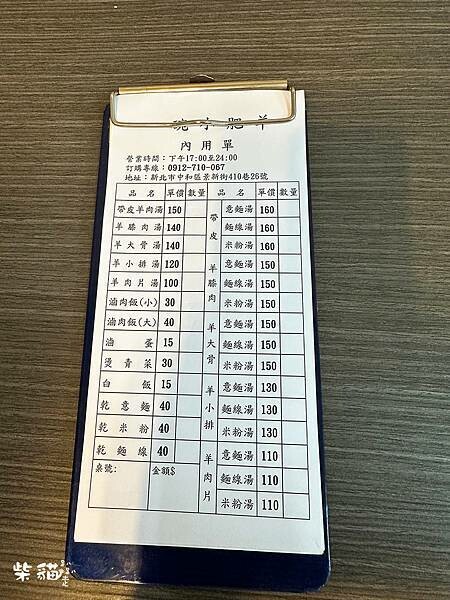 碗小肥羊
內用單
營業時間：下午17:00至24:00
訂購專線：0912-710-067
地址：新北市中和區景新街410巷26號
品名 單價 數量 品名 單價 數量
帶皮羊肉湯 150
羊膝肉湯 140
羊大骨湯 140
羊小排湯 120
羊肉片湯 100
滷肉飯(小) 30
滷肉飯(大) 40
滷蛋 15
燙青菜 30
白飯 15
乾意麵 40
乾米粉 40
乾麵線 40
桌號： 金額$
帶皮
意麵湯 160
麵線湯 160
米粉湯 160
羊膝肉
意麵湯 150
麵線湯 150
米粉湯 150
羊大骨
意麵湯 150
麵線湯 150
米粉湯 150
羊小排
意麵湯 130
麵線湯 130
米粉湯 130
羊肉片
意麵湯 110
麵線湯 110
米粉湯 110
柴貓